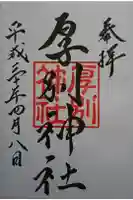 奉拝
厚別神社
厚別
神社
平成二十年四月八日